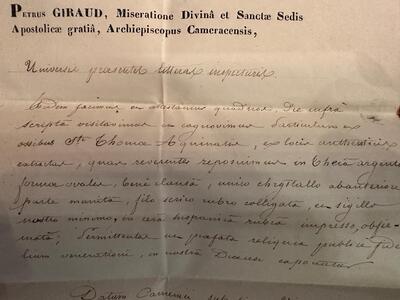 PETRUS GIRAUD, Miseratione Divinâ et Sanctæ Sedis
Apostolicæ gratiâ, Archiepiscopus Cameracensis,
Universis præsentes litteras inspecturis.
fidem facimus et attestamur quod nos die infrà
scriptâ visitavimus et recognovimus particulam ex
ossibus Sti Thomæ Aquinatis, ex locis authenticis
extractas, quas reverenter reposuimus in thecâ argenteâ
formæ ovalis, benè clausâ, unico chrystallo ab anteriore
parte munitâ, filo serico rubro colligatâ, et sigillo
nostro minimo, in cerâ hispanicâ rubrâ impresso, obfir-
matâ; permittentes ut præfata reliquia publicæ fide-
lium venerationi, in nostrâ Diœcesi exponatur
Datum Cameraci